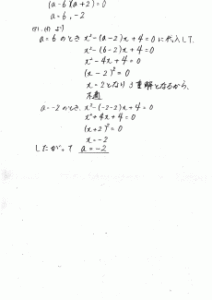 (a-6)(a+2)=0
a=6,-2
(i),(ii)より
a=6のとき x²-(a-2)x+4=0に代入して、
x²-(6-2)x+4=0
x²-4x+4=0
(x-2)²=0
x=2となり3重解となるから、
不適
a=-2のとき、x²-(-2-2)x+4=0
x²+4x+4=0
(x+2)²=0
x=-2
したがって a=-2